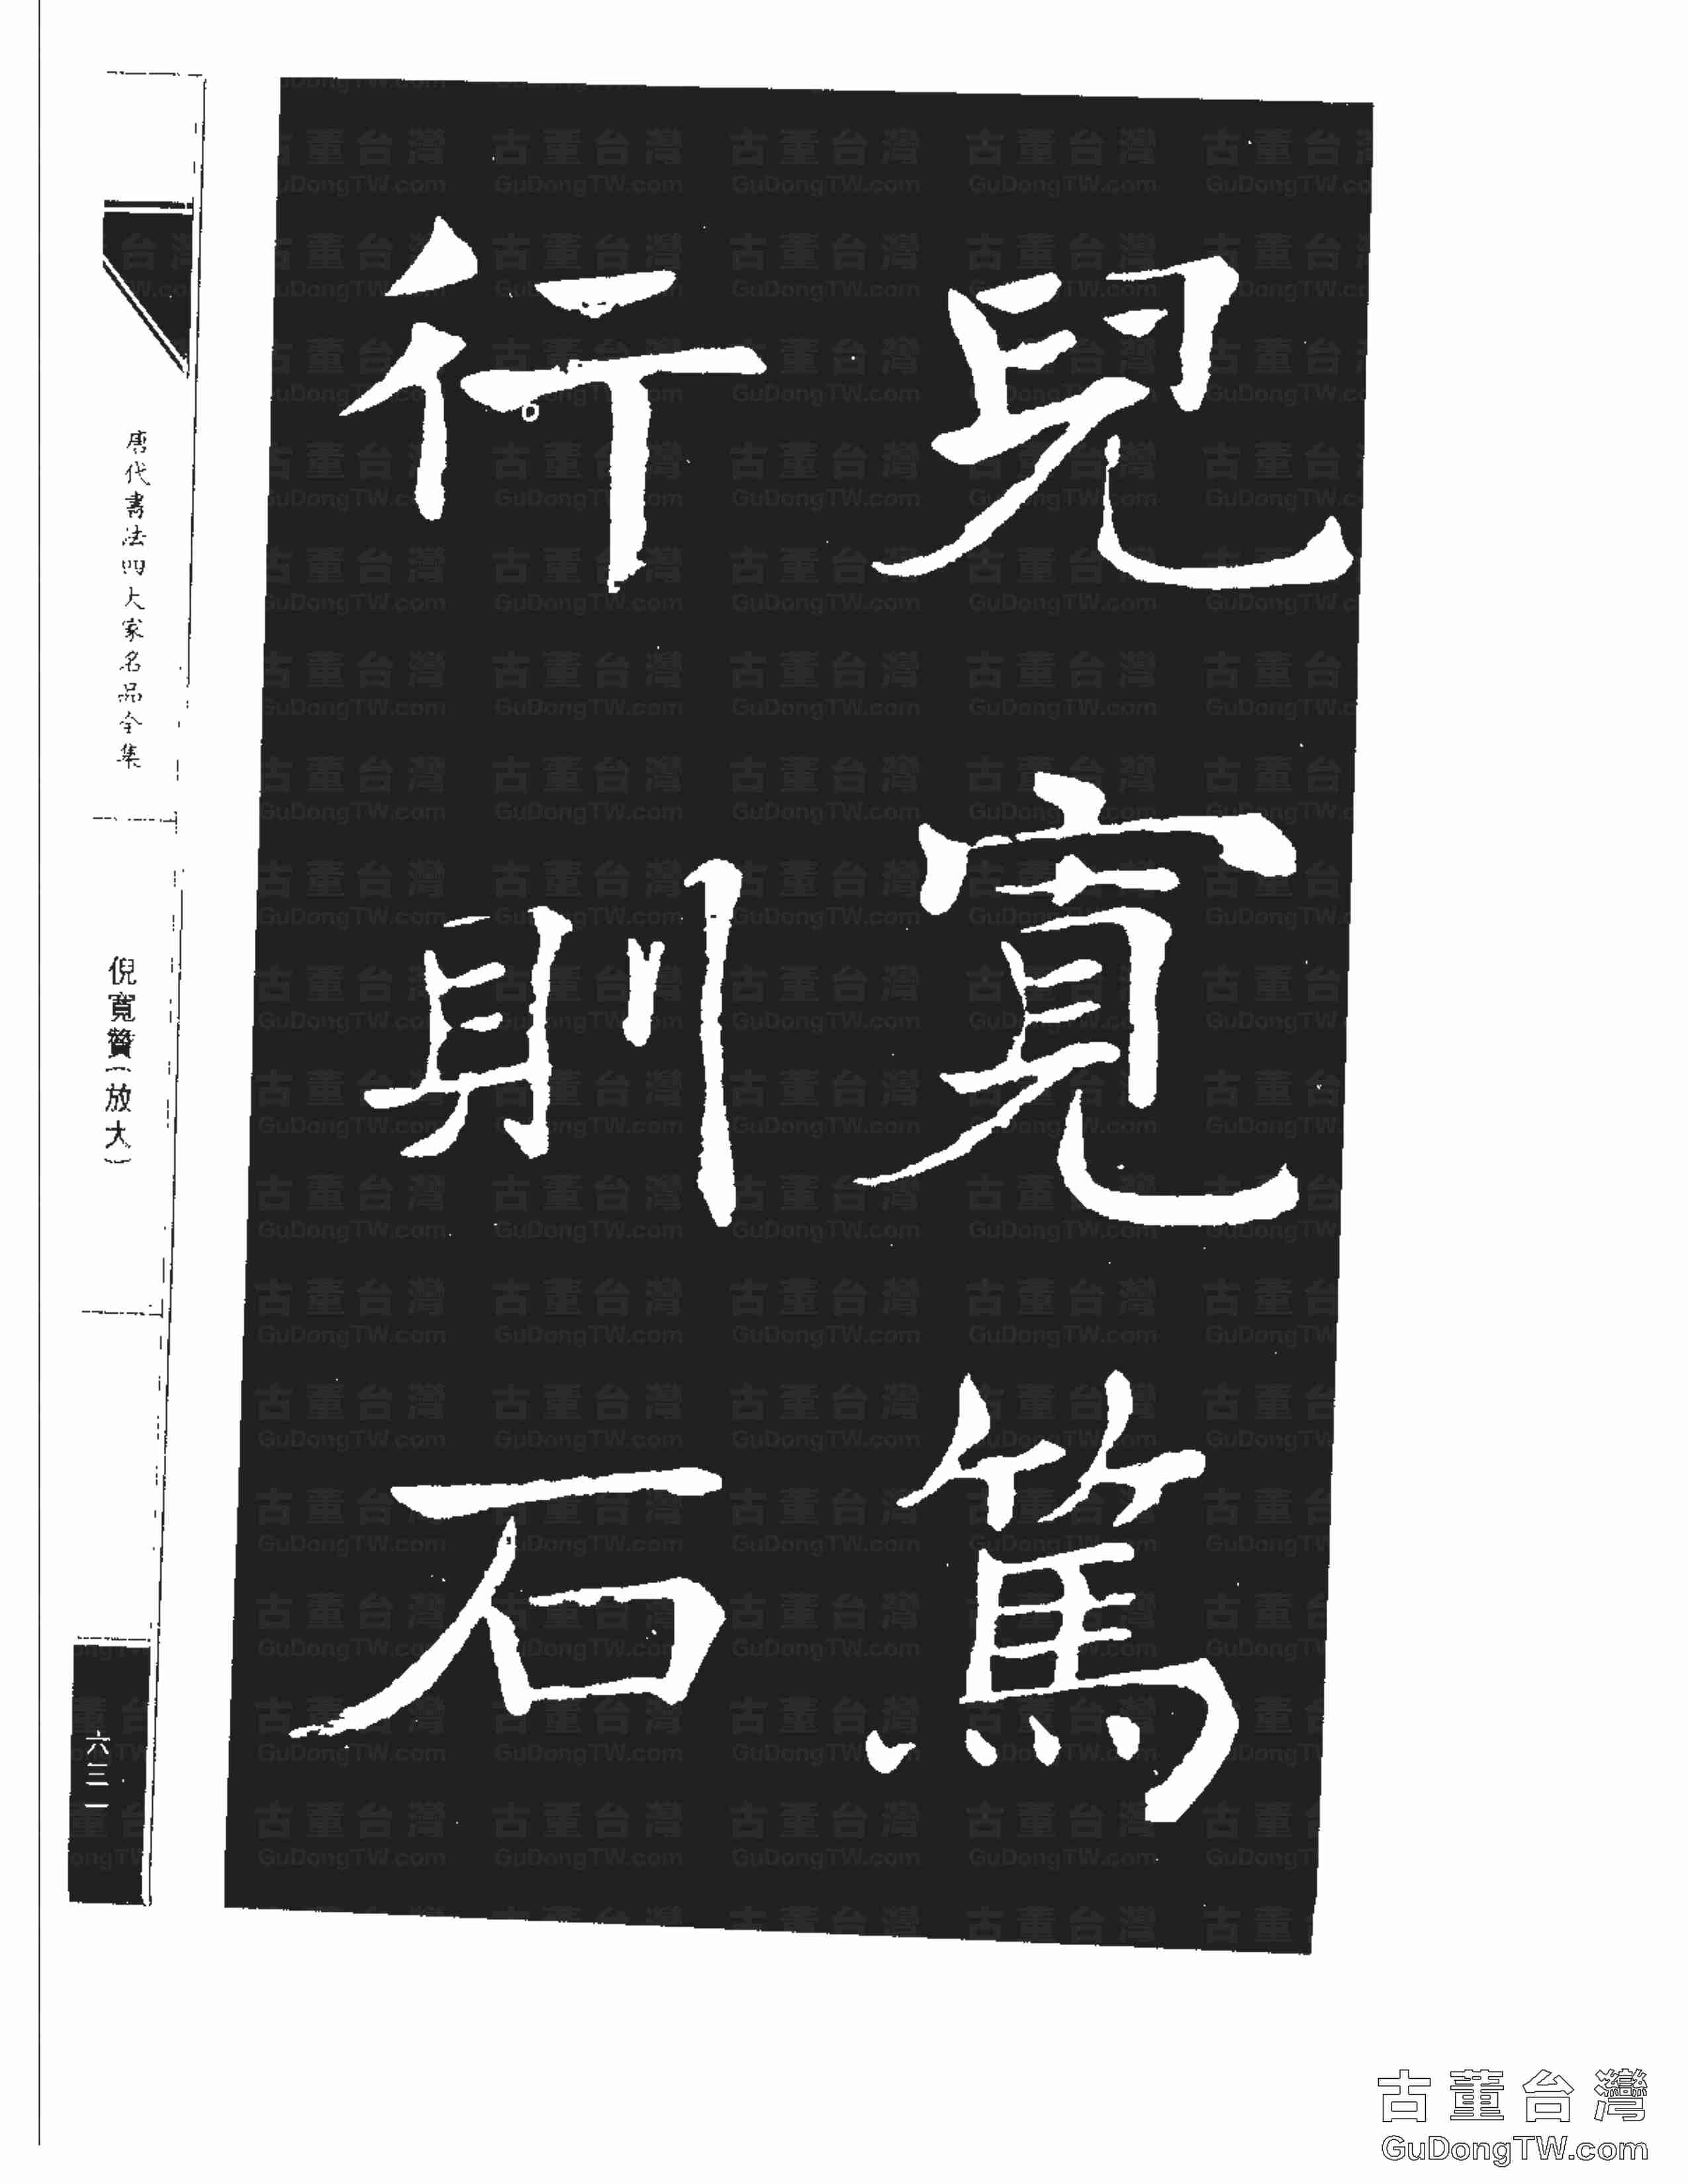 兒寬篤
行則石
唐代書法四大家名品全集
倪寬贊(放大)
六三一
古董台灣
GuDongTW.com